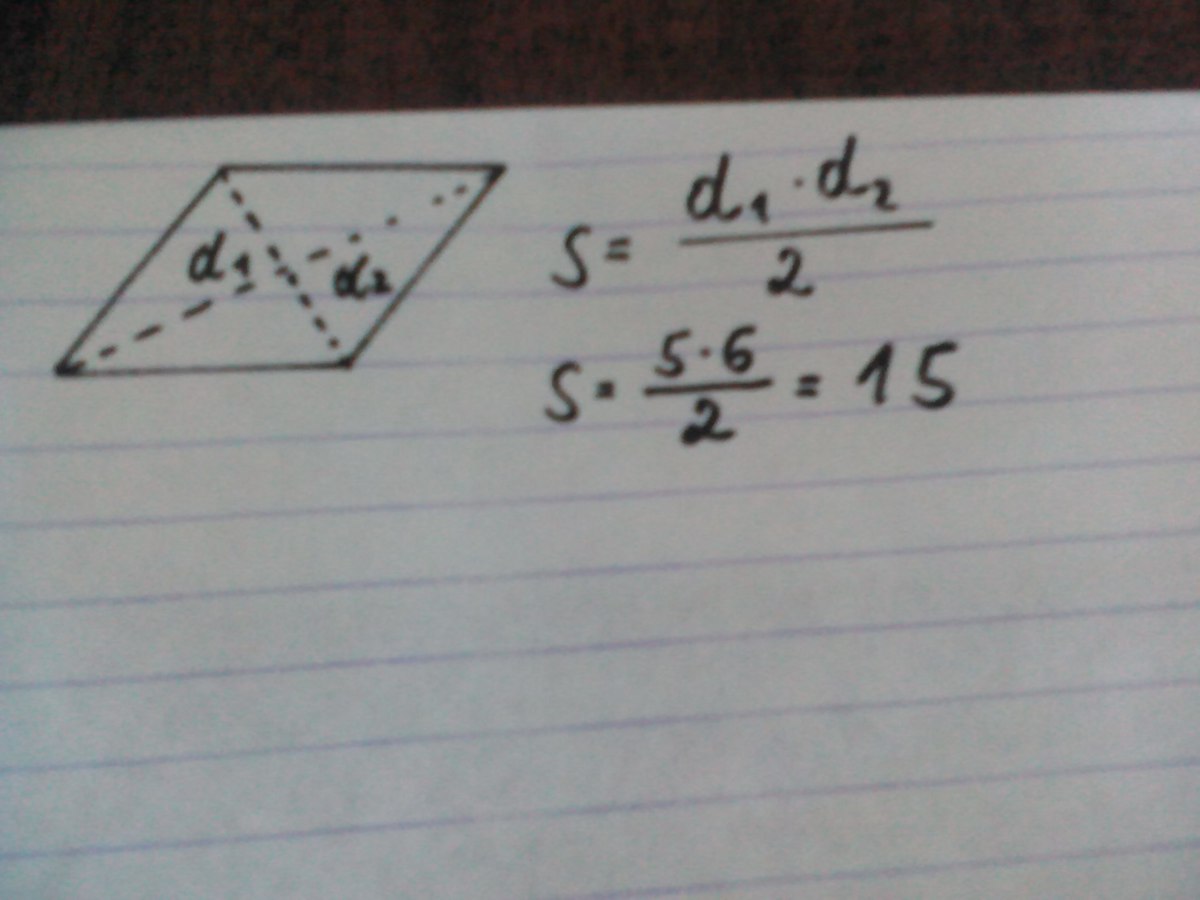 d₁ d₂
S = d₁ · d₂ / 2
S = 5 · 6 / 2 = 15